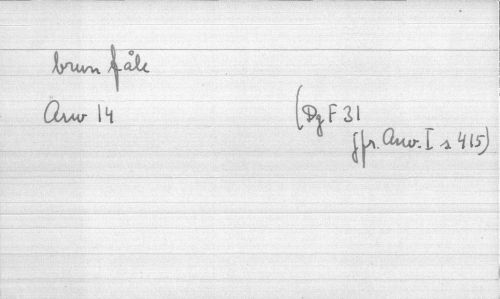 brun fåle
Arw 14
(Dg F 31
jfr. Arw. I s 415)